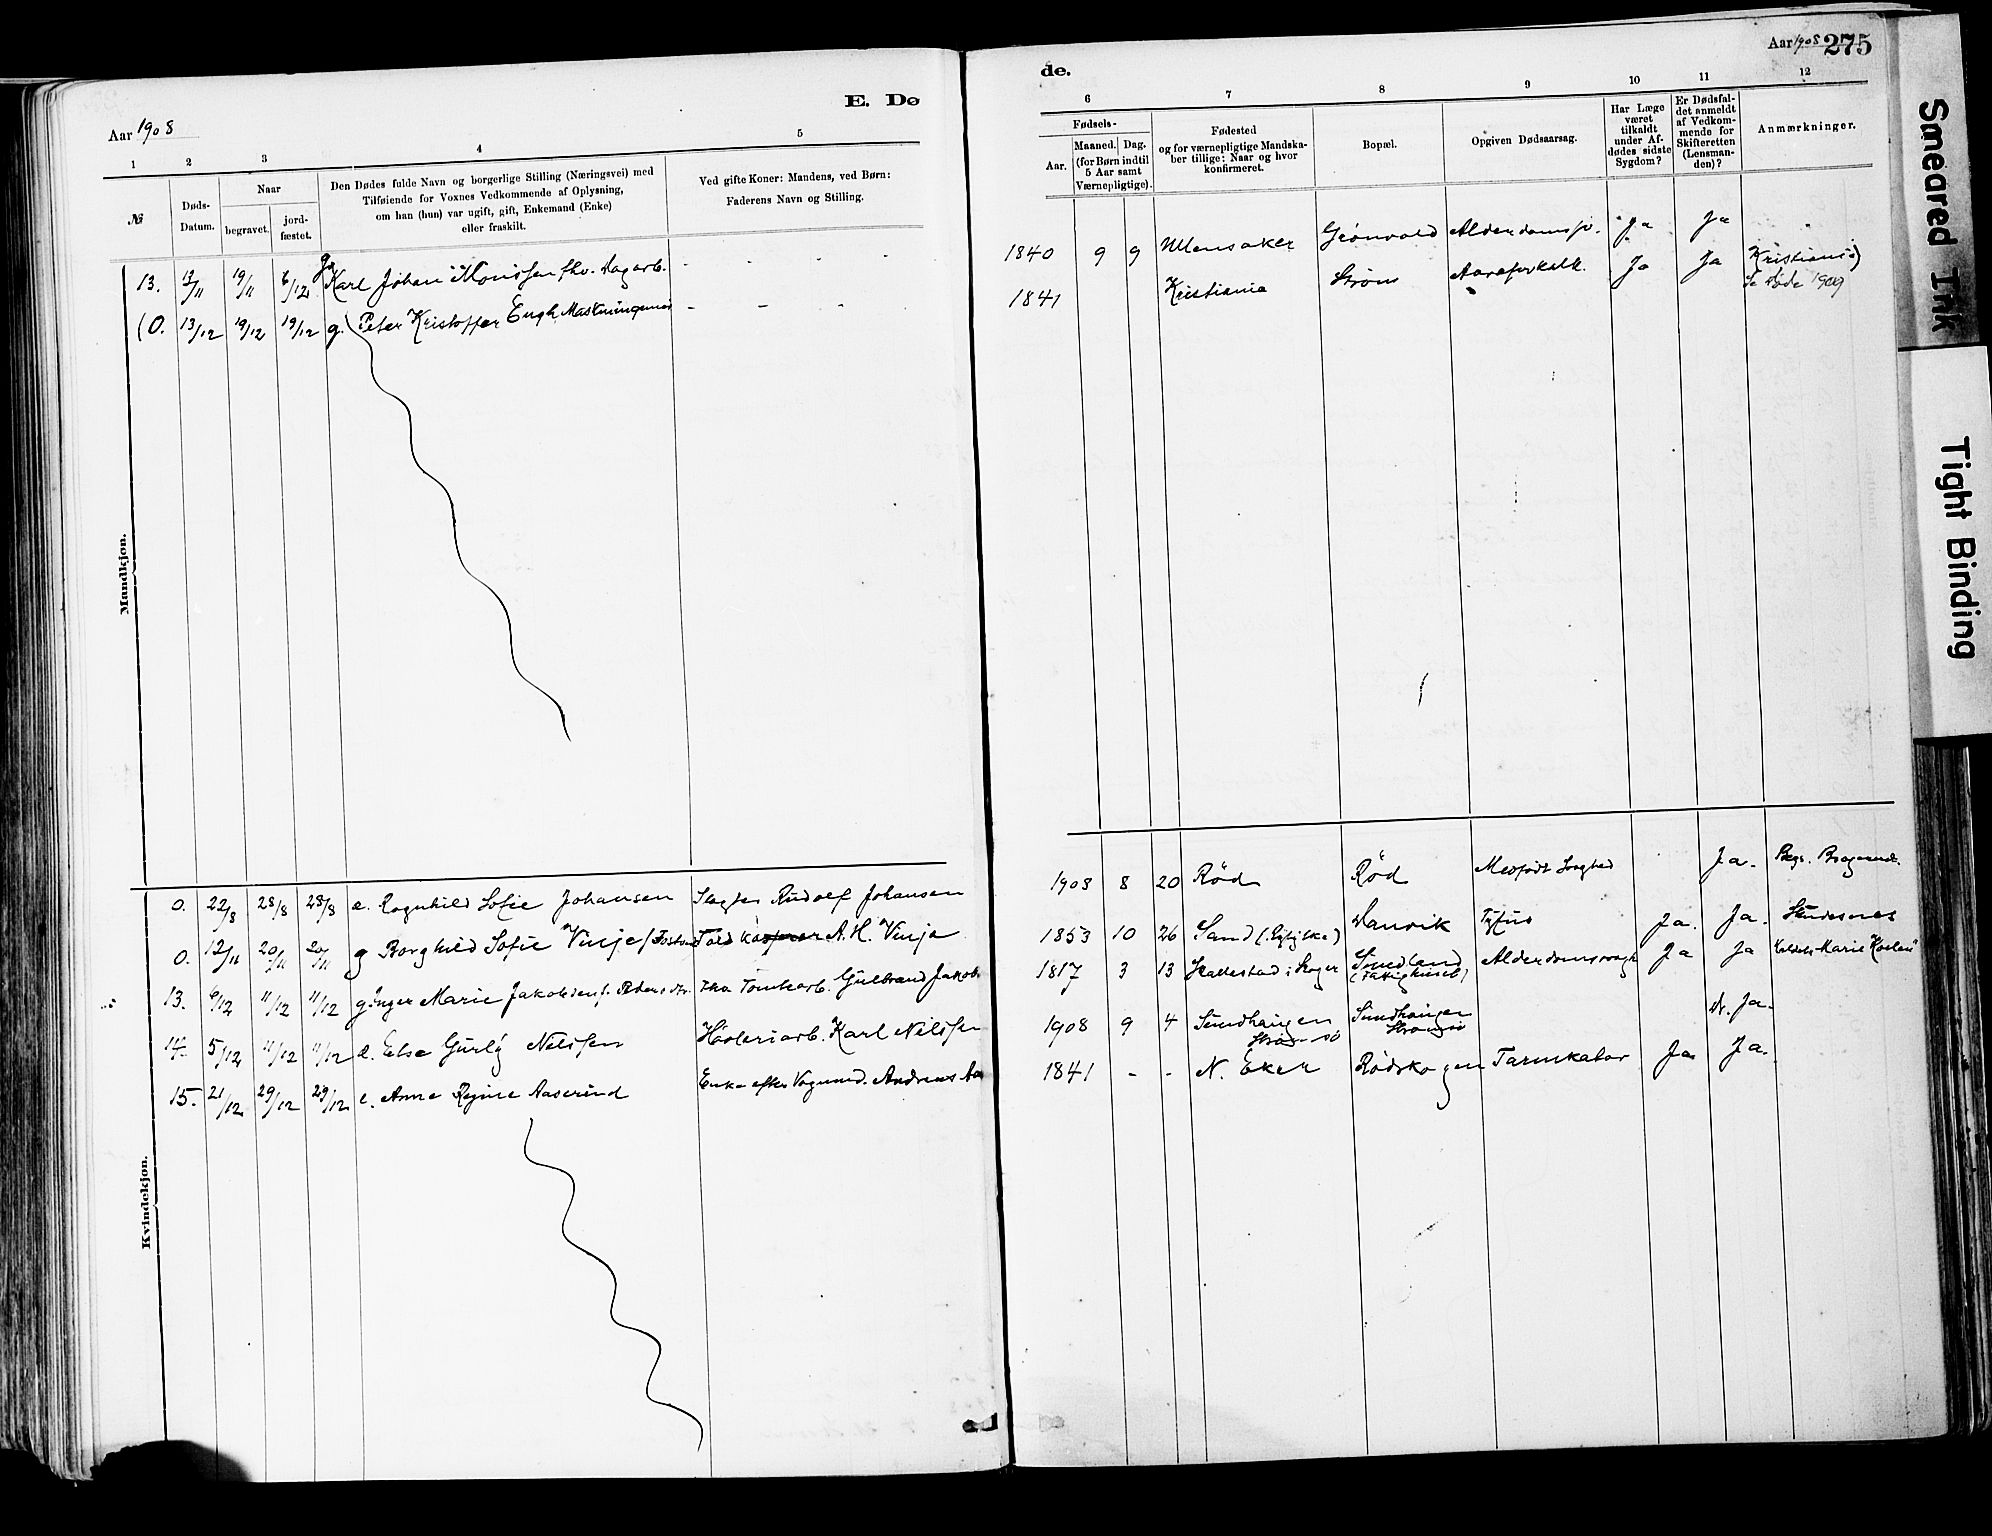 Aar 1908
E. Dø
1 2 3 4 5
№
Døds-
Datum.
Naar
begravet.
jord-
fæstet.
Den Dødes fulde Navn og borgerlige Stilling (Næringsvei) med
Tilføiende for Voxnes Vedkommende af Oplysning,
om han (hun) var ugift, gift, Enkemand (Enke)
eller fraskilt.
Ved gifte Koner: Mandens, ved Børn:
Faderens Navn og Stilling.
Mandkjøn.
13. 12/11 19/11 6/12 g. Karl Johan fhv. Dagarb. - - - -
(0. 13/12 19/12 19/12 g. Peter Kristoffer Engh - - - -
Kvindekjøn.
0. 22/8 28/8 28/8 e. Ragnhild Sofie Johansen Slagter Rudolf Johansen
0. 12/11 20/11 20/11 g Borghild Sofie Vinje A. H. Vinje
13. 6/12 11/12 11/12 g Inger Marie Jakobsen f. Pedersdtr. Fhv. Tomtearb. Gulbrand Jakobs
14. 5/12 11/12 11/12 e. Else Gurly Nelssen Høvleriarb. Karl Nilssen
15. 21/12 29/12 29/12 e. Anne Regine Aaserud Enke efter Vognmd. Andreas Aas
de.
Aar 1908 275
6 7 8 9 10 11 12
Fødsels-
Aar.
Maaned. Dag.
(for Børn indtil
5 Aar samt
Værnepligtige).
Fødested
og for værnepligtige Mandska-
ber tillige: Naar og hvor
konfirmeret.
Bopæl.
Opgiven Dødsaarsag.
Har Læge
været
tilkaldt
under Af-
dødes sidste
Sygdom?
Er Dødsfal-
det anmeldt
af Vedkom-
mende for
Skifteretten
(Lensman-
den)?
Anmærkninger.
1840 9 9 Ullensaker Grönvold Alderdomssv. Ja Ja
1841 Kristiania Strøm Aareforkalk. Ja Ja Kristiania)
Se Døde 1909
1908 8 20 Röd Röd Medfödt Svaghed Ja. Begr. Bragernes.
1853 10 26 Sand (Ryfylke) Danvik Tyfus Ja. Ja. Skudesnes
1817 3 13 Skallestad i Skoger Smedland
(Fattighuset) Alderdomssvagh Ja Ja Kaldes Marie
1908 9 4 Sundhaugen
Strømsø Sundhaugen
Strømsø Ja.
1841 - - N. Eker Rødskogen Tarmkatar Ja Ja.
Smeared Ink
Tight Binding